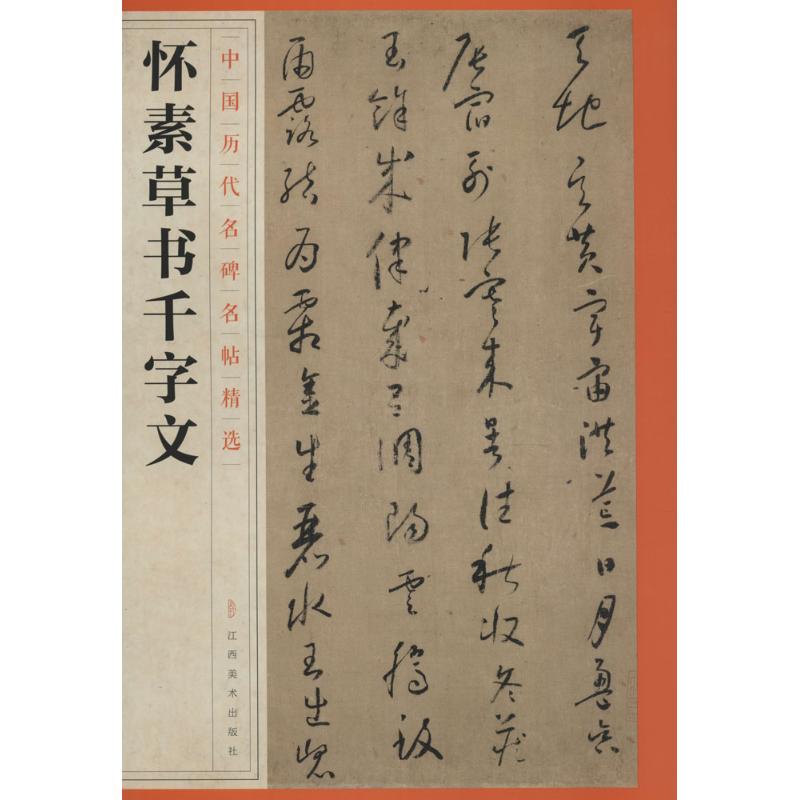 怀素草书千字文
中国历代名碑名帖精选
江西美术出版社
天地玄黄宇宙洪荒日月盈昃
辰宿列張寒來暑往秋收冬藏
閏餘成律歲呂調陽雲騰致
雨露結為霜金生麗水玉出崑